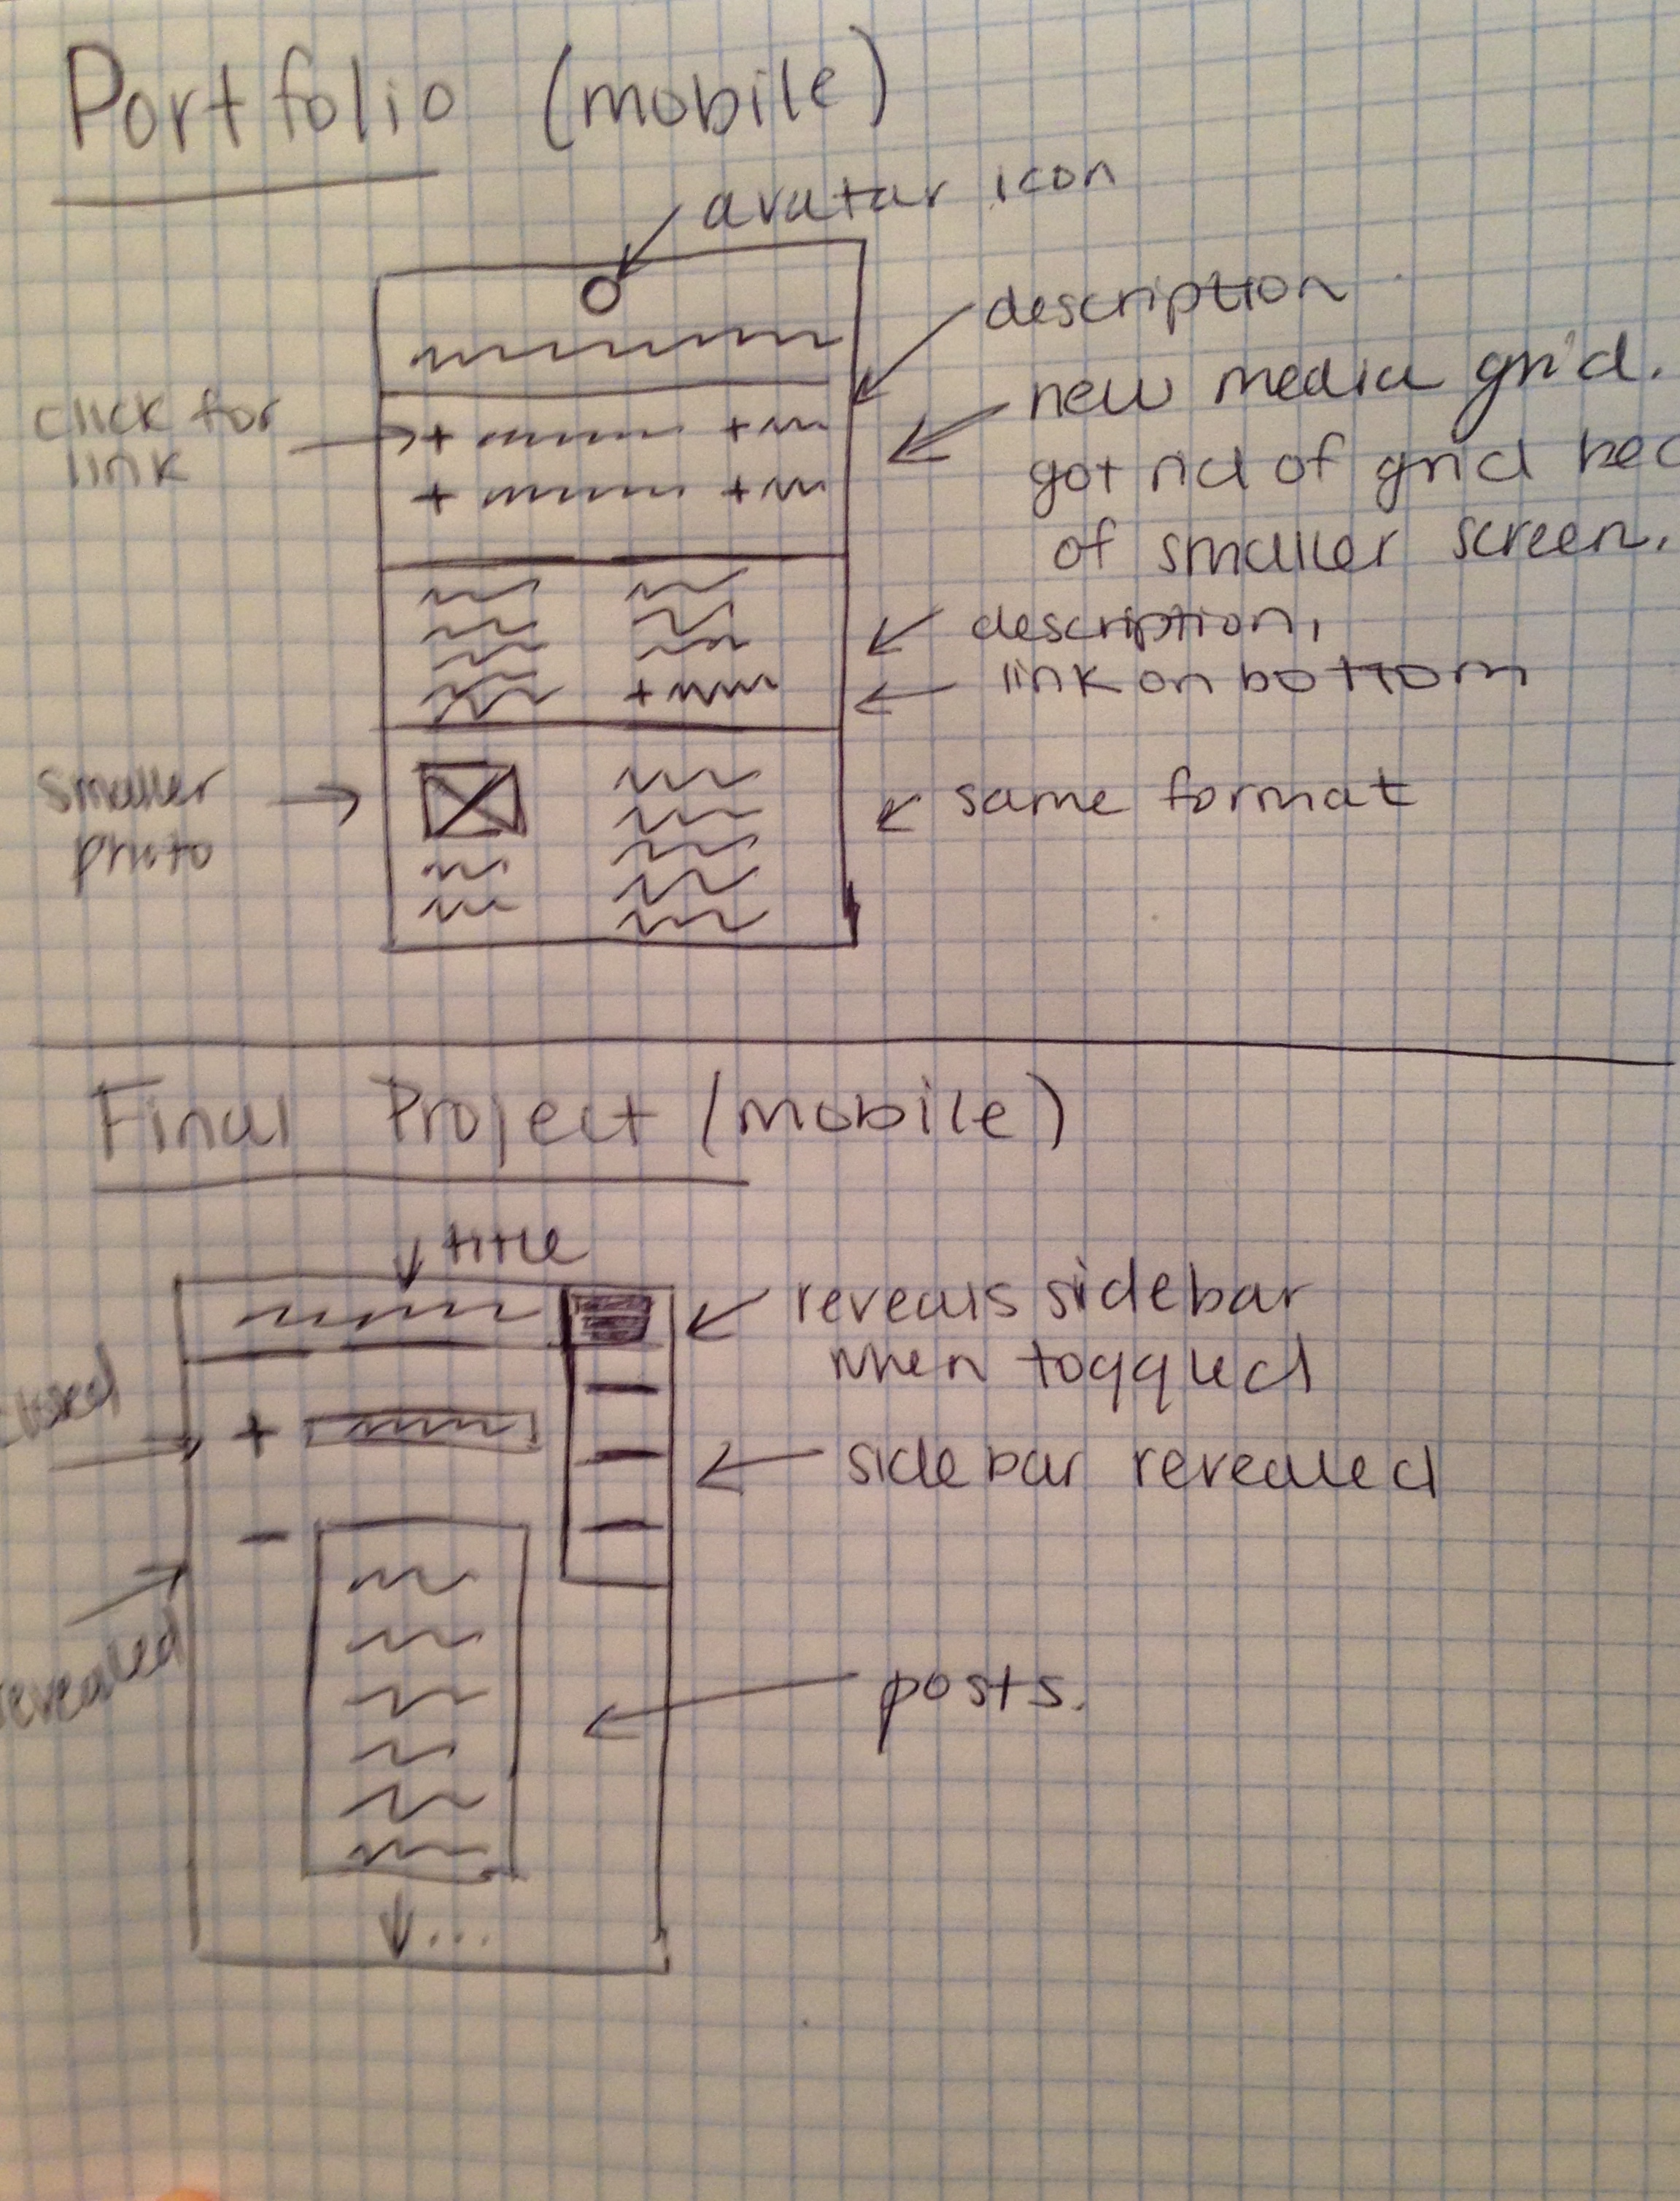 Portfolio (mobile)
avatar icon
description
click for
link
new media grid.
got rid of grid bec
of smaller screen.
description,
link on bottom
smaller
photo
same format
Final Project (mobile)
title
reveals sidebar
when toggled
closed
sidebar revealed
revealed
posts.
...